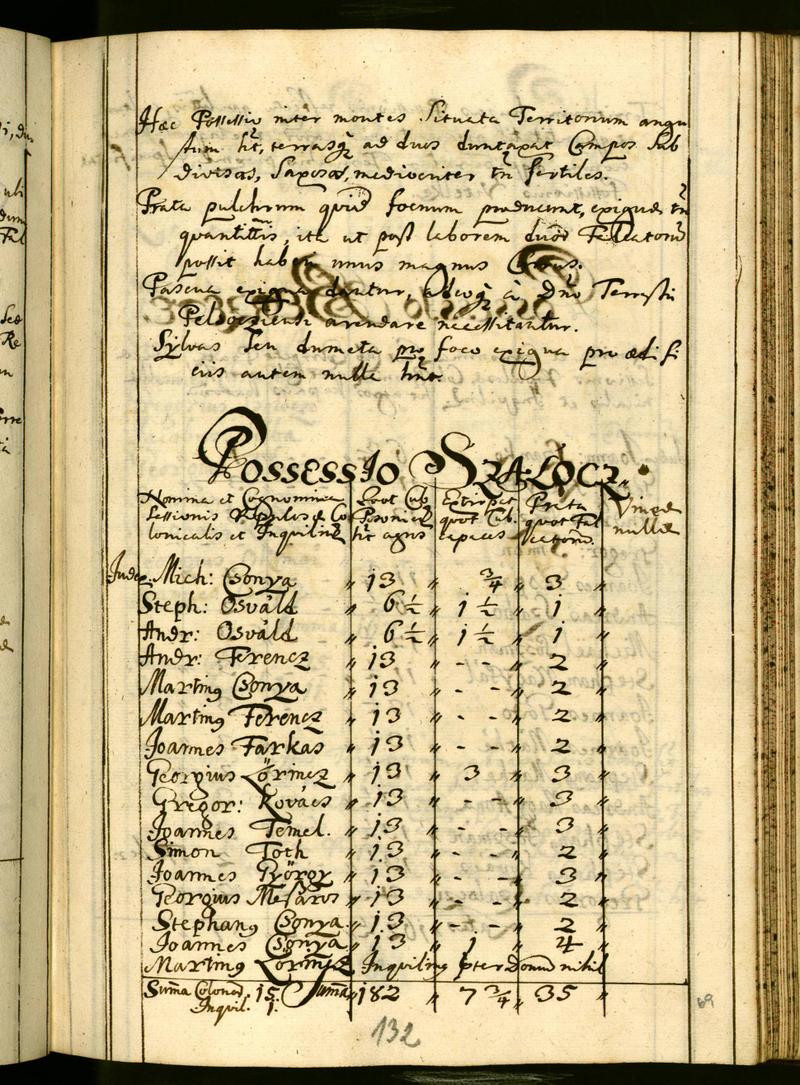 Hæc Possessio inter montes Situata Territorium angu
stum ht, terrasq ad duos duntaxat Campos Sub
divisas, Saxosas, mediocriter tn fertiles.
Prata pulchrum quid foenum producunt, exiguæ tn
quantitatis, ita ut post laborem duor Falcatorum
possit haberi unus magnus Currus.
Pascua exigua dantur, adeoq à Dno Terrestri
arendare necessitantur.
Sylvas seu dumeta pro foco exigua pro ædifi
ciis autem nulla hnt.
Possessio Szalocz.
Nomina et Cognomina Quot Cub Extirpat Prata Vineæ
Sessionis Co Posonien quot Cub. quot Fal nullæ
lonicalis et Inquilinæ ht agros capaces catorum
Judex Mich: Csonya " 13 " 3/4 " 3 "
Steph: Osváld " 6 1/2 " 1 1/2 " 1 "
Andr: Osváld " 6 1/2 " 1 1/2 " 1 "
Andr: Ferencz " 13 " - - " 2 "
Martinus Csonya " 13 " - - " 2 "
Martinus Ferencz " 13 " - - " 2 "
Joannes Farkas " 13 " - - " 2 "
Georgius Lörincz " 13 " 3 " 3 "
Gregor: Kovács " 13 " - - " 3 "
Joannes Temel. " 13 " - - " 3 "
Simon Toth " 13 " - - " 2 "
Joannes György " 13 " - - " 3 "
Georgius Mesáros " 13 " - - " 2 "
Stephanus Csonya " 13 " - - " 2 "
Joannes Csonya " 13 " 1 " 4 "
Martinus Lörincz Inquilinus pter Domum nihil
Suma Colonor. 15. Suma " 182 " 7 3/4 " 35 "
Inquil. 1.
132
69